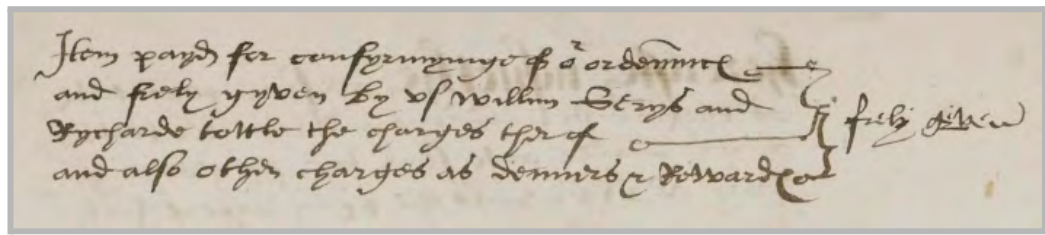 Item payd for confyrmynge of or ordennnces
and frely gyven by vs Willm Serys and
Rycharde tottle the charges ther of frely geven
and also other charges as denners & Rewardes